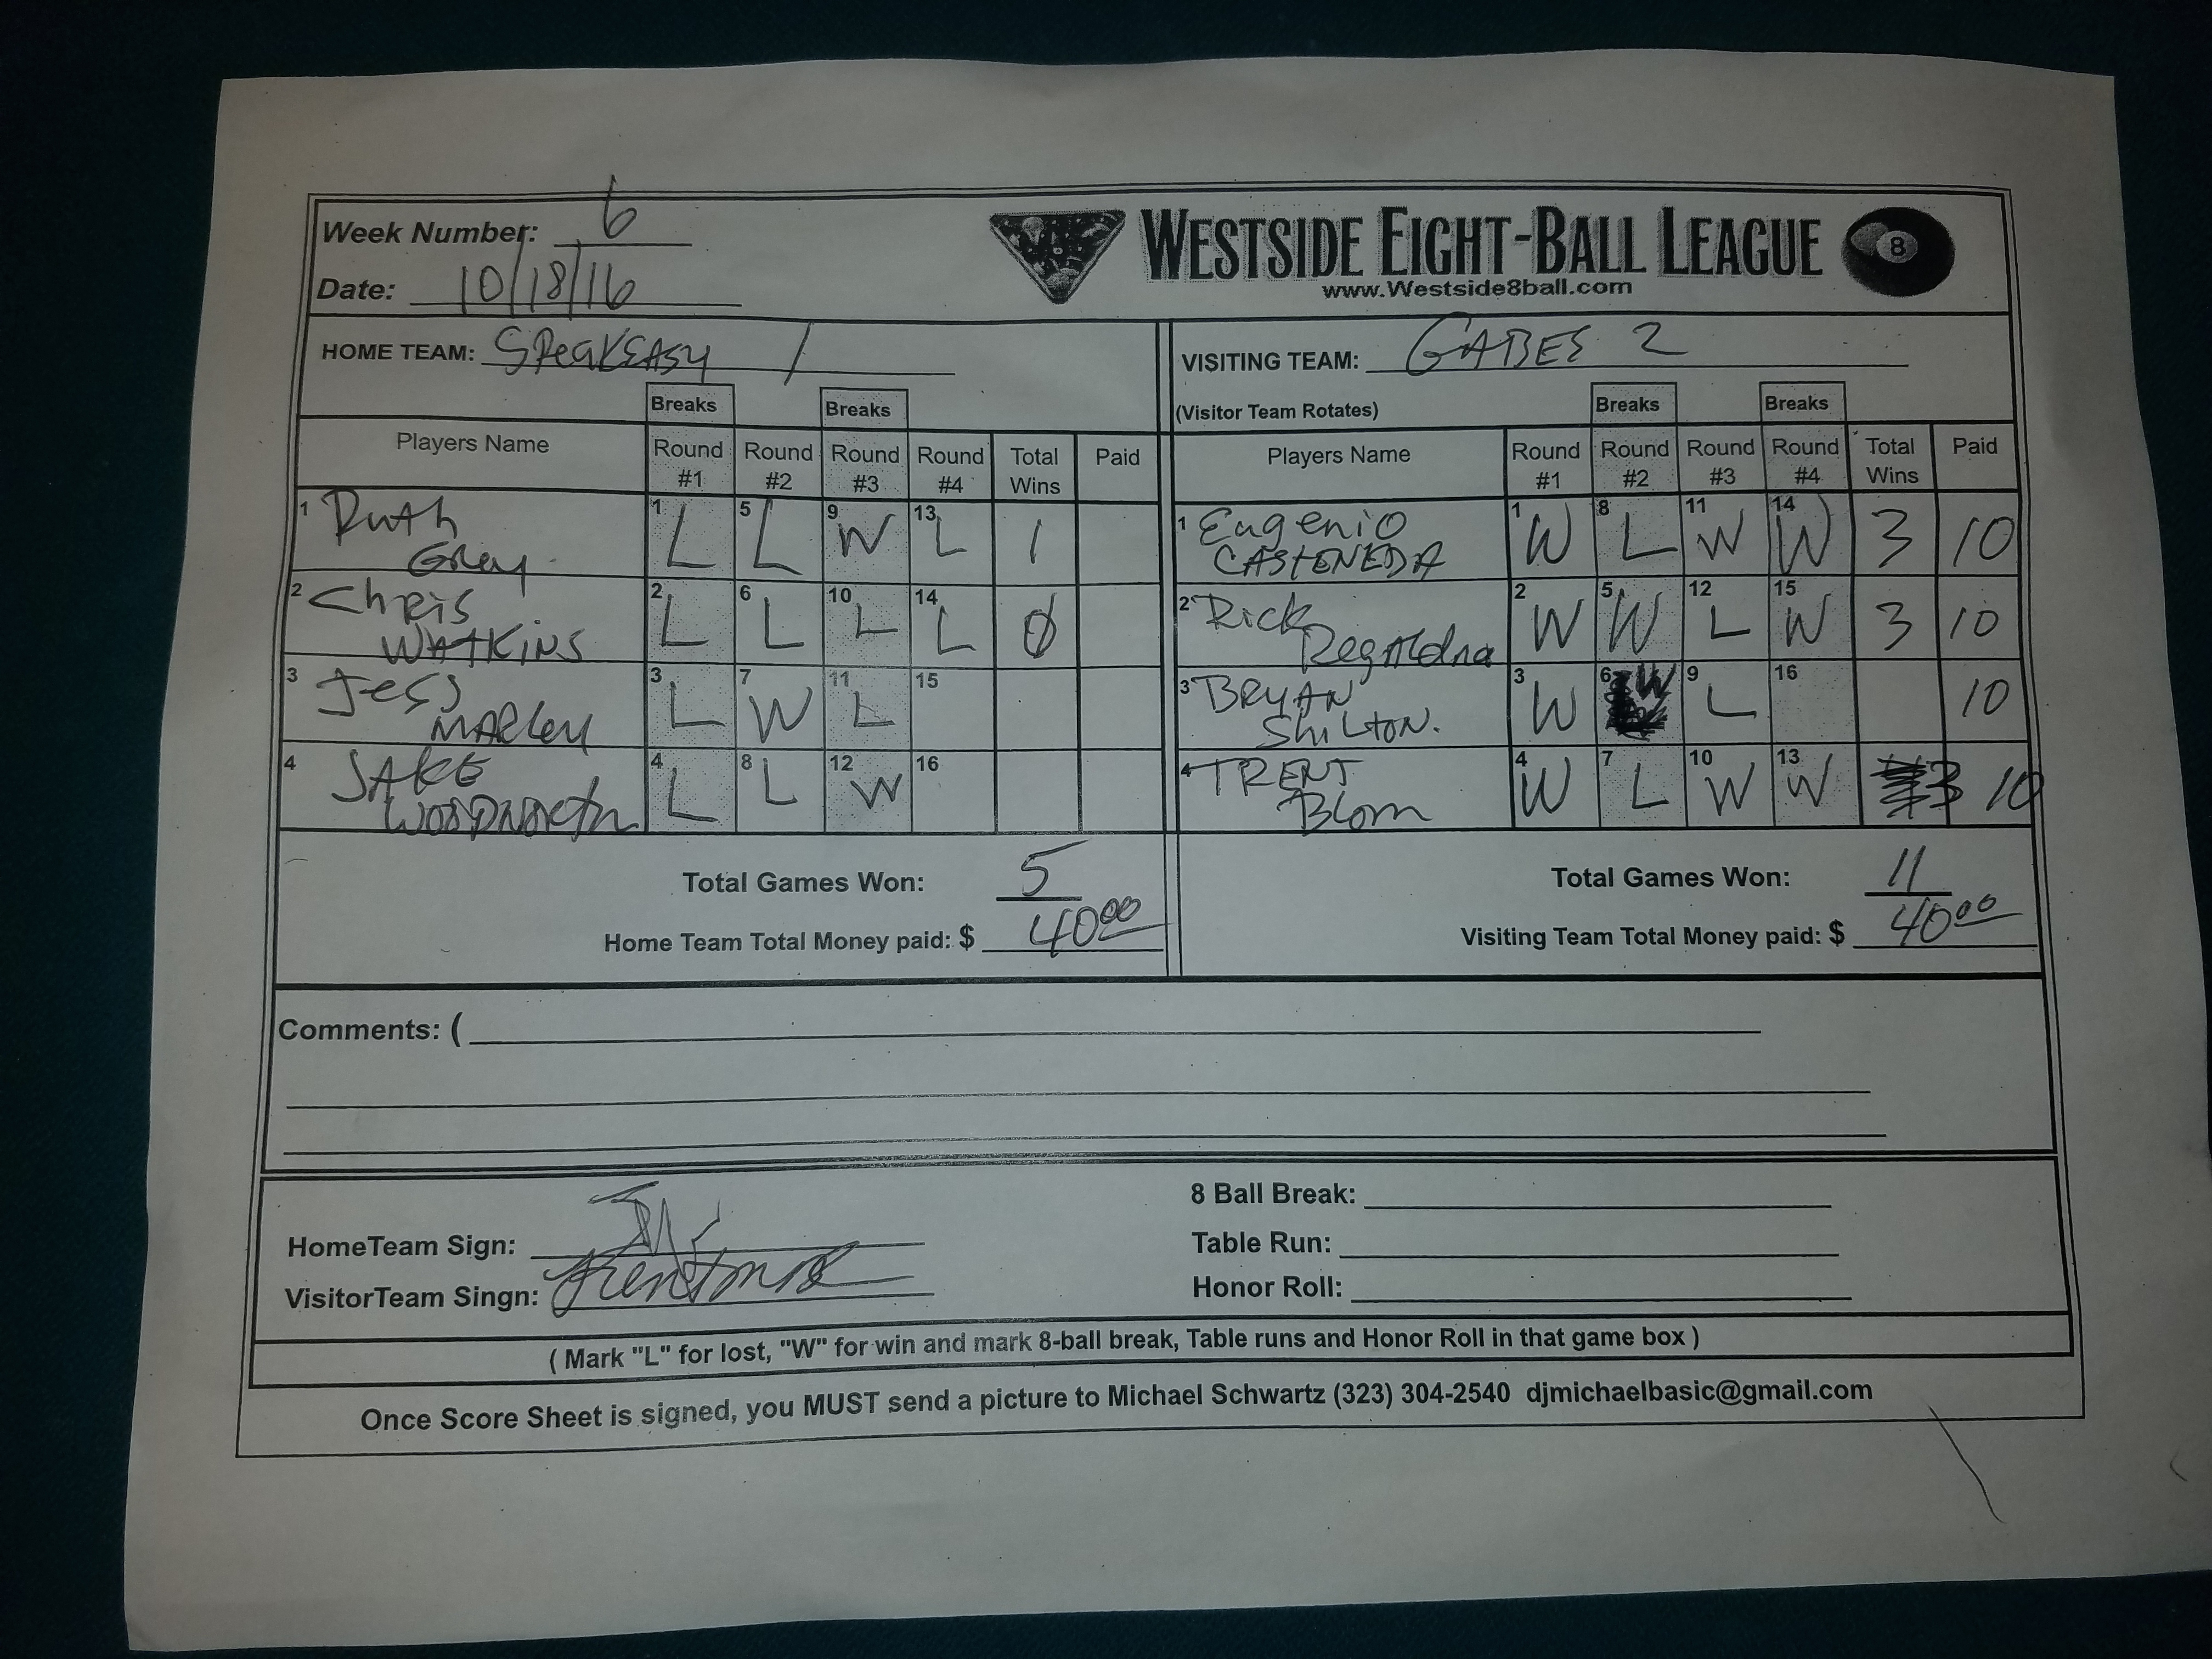 Week Number: 6
Date: 10/18/16
WESTSIDE EIGHT-BALL LEAGUE 8
www.Westside8ball.com
HOME TEAM: SPEAKEASY 1
VISITING TEAM: GABES 2
Breaks Breaks
(Visitor Team Rotates) Breaks Breaks
Players Name Round #1 Round #2 Round #3 Round #4 Total Wins Paid
1 Ruth Grey 1 L 5 L 9 W 13 L 1
2 Chris WATKINS 2 L 6 L 10 L 14 L 0
3 Jess MARLEY 3 L 7 W 11 L 15
4 JAKE 4 L 8 L 12 W 16
Total Games Won: 5
Home Team Total Money paid: $ 40 00
Players Name Round #1 Round #2 Round #3 Round #4 Total Wins Paid
1 Eugenio CASTENEDA 1 W 8 L 11 W 14 W 3 10
2 Rick 2 W 5 W 12 L 15 W 3 10
3 BRYAN ShiLTON. 3 W 6 W 9 L 16 10
4 TRENT Blom 4 W 7 L 10 W 13 W 3 10
Total Games Won: 11
Visiting Team Total Money paid: $ 40 00
Comments: (
HomeTeam Sign:
VisitorTeam Singn:
8 Ball Break:
Table Run:
Honor Roll:
( Mark "L" for lost, "W" for win and mark 8-ball break, Table runs and Honor Roll in that game box )
Once Score Sheet is signed, you MUST send a picture to Michael Schwartz (323) 304-2540 djmichaelbasic@gmail.com